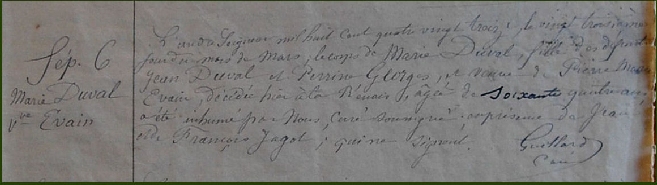 Sép. 6
Marie Duval
Vve Evain
L'an du Seigneur mil huit cent quatre vingt trois, le vingt troisième
jour du mois de Mars, le corps de Marie Duval fille des défunts
Jean Duval et Perrine Georges, et veuve de Pierre
Evain, décédée hier à la Renais, âgée de soixante quatre ans,
a été inhumé par Nous, Curé soussigné, en présence de Jean
et de François Jagot, qui ne signent.
Guillard
Curé